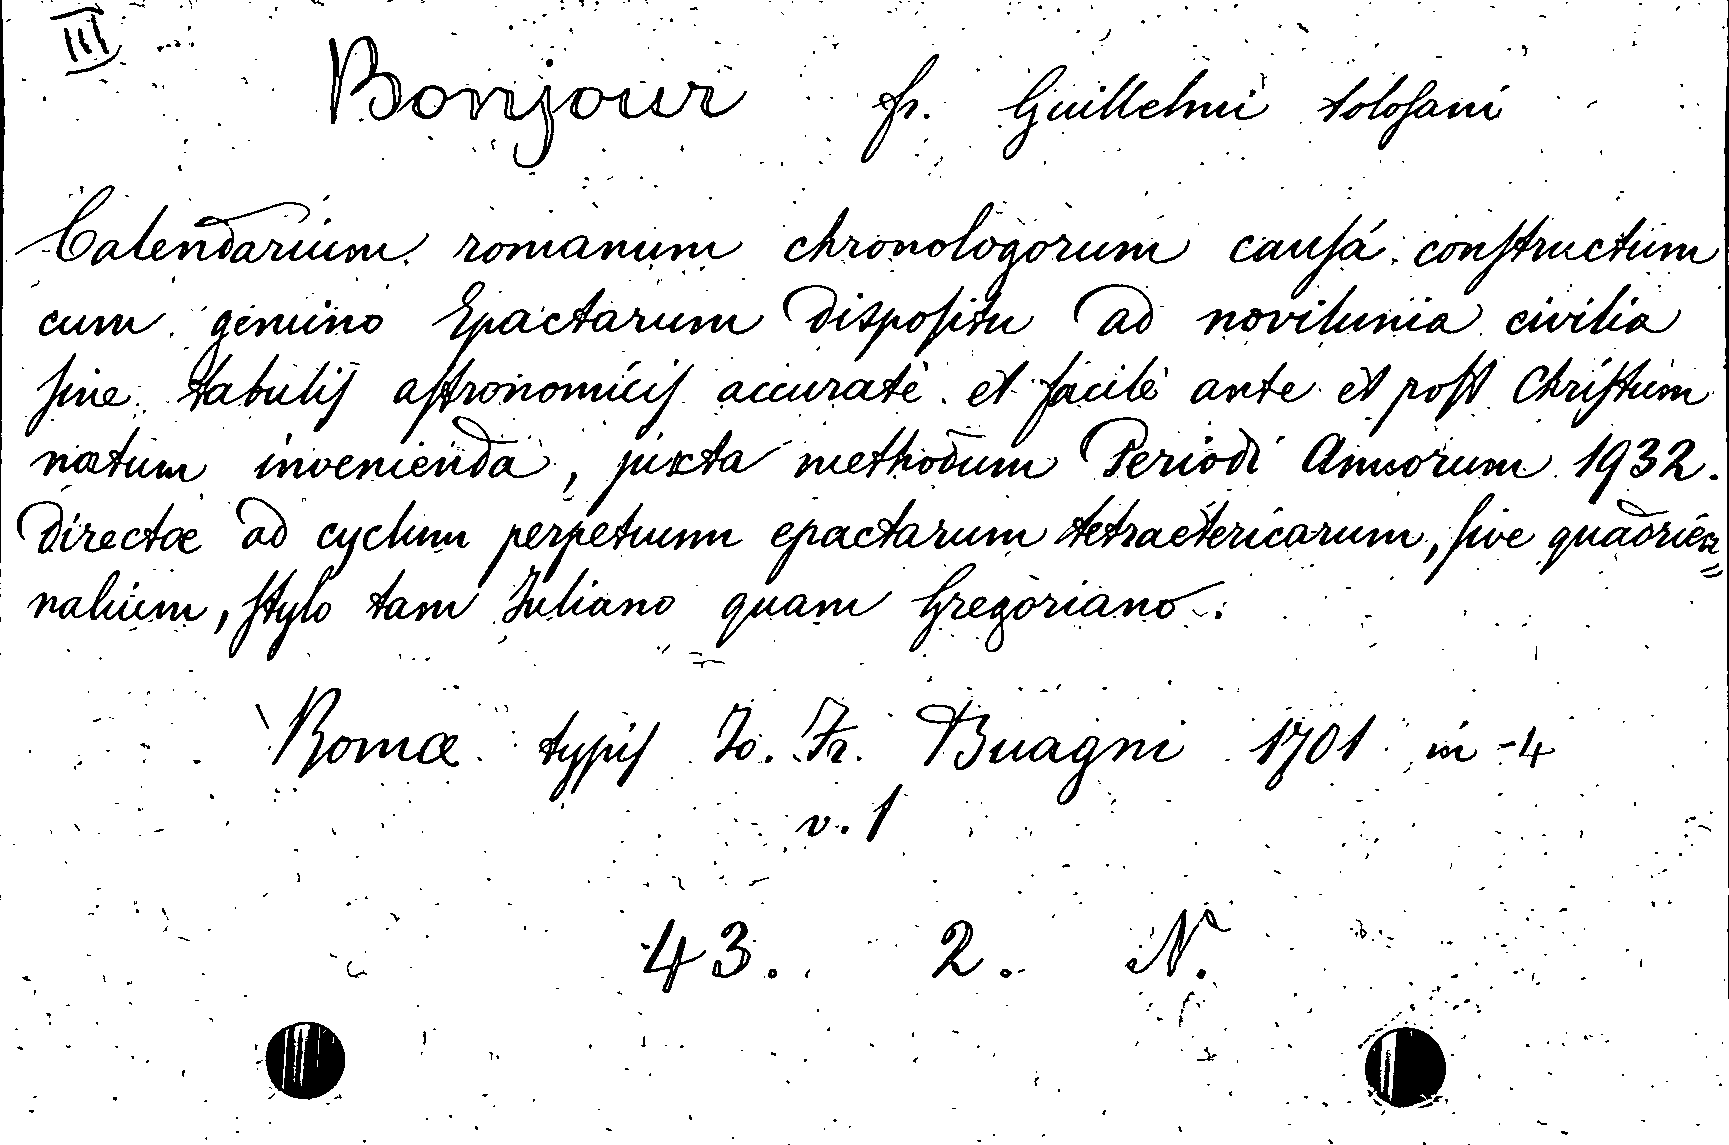 III
Bonjour fr. Guillelmi toloſani
Calendarium romanum chronologorum cauſá conſtructum
cum gemino Epactarum diſpoſitu ad novilunia civilia
ſine tabuliſ aſtronomiciſ accuratè et facilè ante et poſt Chriſtum
natum invenienda, juxta methodum Periodi Annorum 1932.
directæ ad cyclum perpetuum epactarum tetraëtericarum, ſive quadrien=
nalium, ſtylo tam Juliano quam Gregoriano.
Romæ typiſ Jo. Fr. Buagni 1701 in-4
v. 1
43. 2. N.